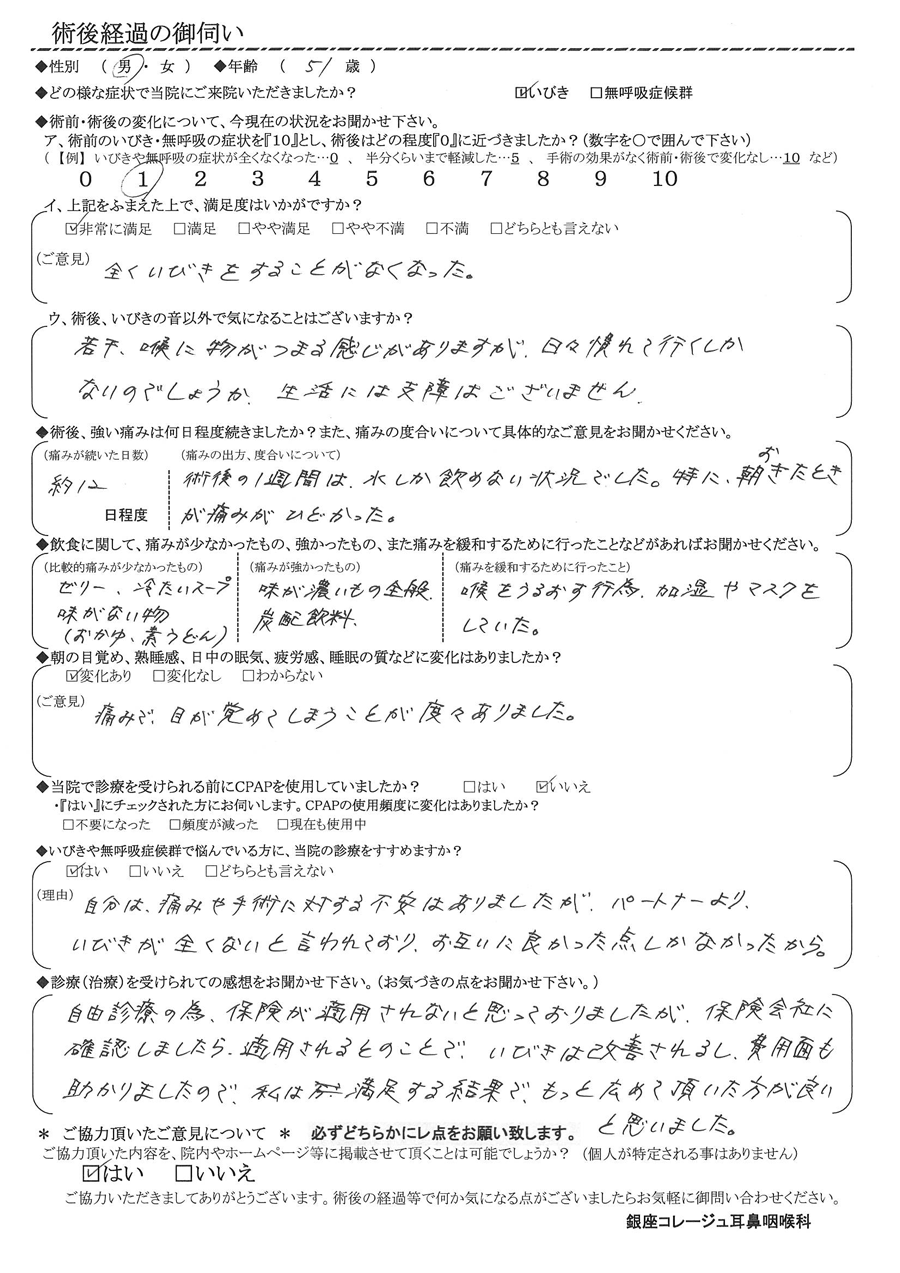 術後経過の御伺い
◆性別 ( 男 ・ 女 ) ◆年齢 ( 51 歳 )
◆どの様な症状で当院にご来院いただきましたか? ☑いびき □無呼吸症候群
◆術前・術後の変化について、今現在の状況をお聞かせ下さい。
ア、術前のいびき・無呼吸の症状を『10』とし、術後はどの程度『0』に近づきましたか?(数字を○で囲んで下さい)
(【例】いびきや無呼吸の症状が全くなくなった…0 、 半分くらいまで軽減した…5 、 手術の効果がなく術前・術後で変化なし…10 など)
0 1 2 3 4 5 6 7 8 9 10
イ、上記をふまえた上で、満足度はいかがですか?
☑非常に満足 □満足 □やや満足 □やや不満 □不満 □どちらとも言えない
(ご意見) 全くいびきをすることがなくなった。
ウ、術後、いびきの音以外で気になることはございますか?
若干、喉に物がつまる感じがありますが、日々慣れて行くしか
ないのでしょうか、生活には支障はございません。
◆術後、強い痛みは何日程度続きましたか?また、痛みの度合いについて具体的なご意見をお聞かせください。
(痛みが続いた日数) (痛みの出方、度合いについて)
約12 日程度
術後の1週間は、水しか飲めない状況でした。特に、朝おきたとき
が痛みがひどかった。
◆飲食に関して、痛みが少なかったもの、強かったもの、また痛みを緩和するために行ったことなどがあればお聞かせください。
(比較的痛みが少なかったもの) (痛みが強かったもの) (痛みを緩和するために行ったこと)
ゼリー、冷たいスープ
味がない物
(おかゆ、素うどん)
味が濃いもの全般、
炭酸飲料、
喉をうるおす行為、加湿やマスクを
していた。
◆朝の目覚め、熟睡感、日中の眠気、疲労感、睡眠の質などに変化はありましたか?
☑変化あり □変化なし □わからない
(ご意見) 痛みで、目が覚めてしまうことが度々ありました。
◆当院で診療を受けられる前にCPAPを使用していましたか? □はい ☑いいえ
・『はい』にチェックされた方にお伺いします。CPAPの使用頻度に変化はありましたか?
□不要になった □頻度が減った □現在も使用中
◆いびきや無呼吸症候群で悩んでいる方に、当院の診療をすすめますか?
☑はい □いいえ □どちらとも言えない
(理由) 自分は、痛みや手術に対する不安はありましたが、パートナーより、
いびきが全くないと言われており、お互いに良かった点しかなかったから。
◆診療(治療)を受けられての感想をお聞かせ下さい。(お気づきの点をお聞かせ下さい。)
自由診療の為、保険が適用されないと思っておりましたが、保険会社に
確認しましたら、適用されるとのことで、いびきは改善されるし、費用面も
助かりましたので、私は満足する結果で、もっと広めて頂いた方が良い
と思いました。
* ご協力頂いたご意見について * 必ずどちらかにレ点をお願い致します。
ご協力頂いた内容を、院内やホームページ等に掲載させて頂くことは可能でしょうか? (個人が特定される事はありません)
☑はい □いいえ
ご協力いただきましてありがとうございます。術後の経過等で何か気になる点がございましたらお気軽に御問い合わせください。
銀座コレージュ耳鼻咽喉科